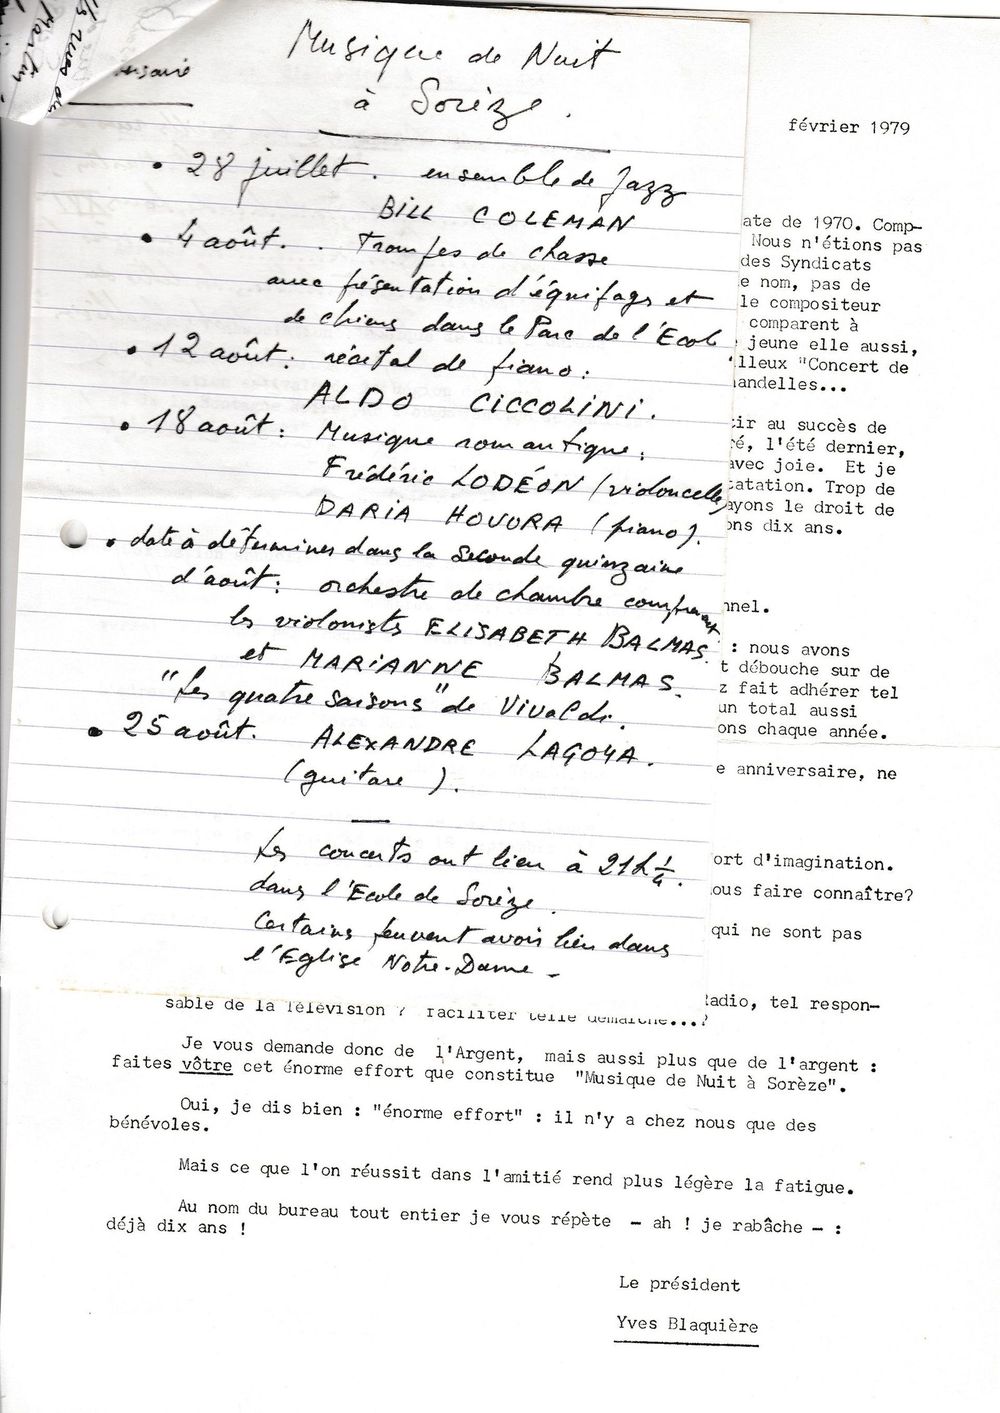 Musique de Nuit
à Sorèze.
• 28 juillet. ensemble de Jazz
BILL COLEMAN
• 4 août. . Trompes de chasse
avec présentation d'équipages et
de chiens dans le Parc de l'Ecole
• 12 août : récital de piano :
ALDO CICCOLINI.
• 18 août : Musique romantique :
Frédéric LODÉON (violoncelle)
DARIA HOVORA (piano).
• date à déterminer dans la seconde quinzaine
d'août : orchestre de chambre comprenant
les violonistes ELISABETH BALMAS
et MARIANNE BALMAS.
"Les quatre saisons" de Vivaldi.
• 25 août. ALEXANDRE LAGOYA.
(guitare).
Les concerts ont lieu à 21h 1/4.
dans l'Ecole de Sorèze.
Certains peuvent avoir lieu dans
l'Eglise Notre-Dame -
février 1979
ate de 1970. Comp-
Nous n'étions pas
des Syndicats
e nom, pas de
le compositeur
comparent à
jeune elle aussi,
illeux "Concert de
andelles...
tir au succès de
ré, l'été dernier,
avec joie. Et je
tatation. Trop de
ayons le droit de
ons dix ans.
nnel.
: nous avons
t débouche sur de
z fait adhérer tel
un total aussi
ons chaque année.
e anniversaire, ne
ort d'imagination.
ous faire connaître?
qui ne sont pas
Radio, tel respon-
sable de la Télévision ? faciliter telle démarche...?
Je vous demande donc de l'Argent, mais aussi plus que de l'argent :
faites vôtre cet énorme effort que constitue "Musique de Nuit à Sorèze".
Oui, je dis bien : "énorme effort" : il n'y a chez nous que des
bénévoles.
Mais ce que l'on réussit dans l'amitié rend plus légère la fatigue.
Au nom du bureau tout entier je vous répète - ah ! je rabâche - :
déjà dix ans !
Le président
Yves Blaquière